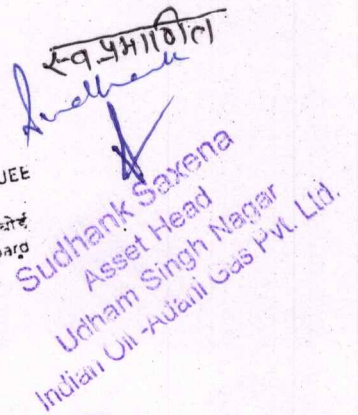 स्व प्रमाणित
Sudhank
JEE
बोर्ड
oard
Sudhank Saxena
Asset Head
Udham Singh Nagar
Indian Oil -Adani Gas Pvt. Ltd.